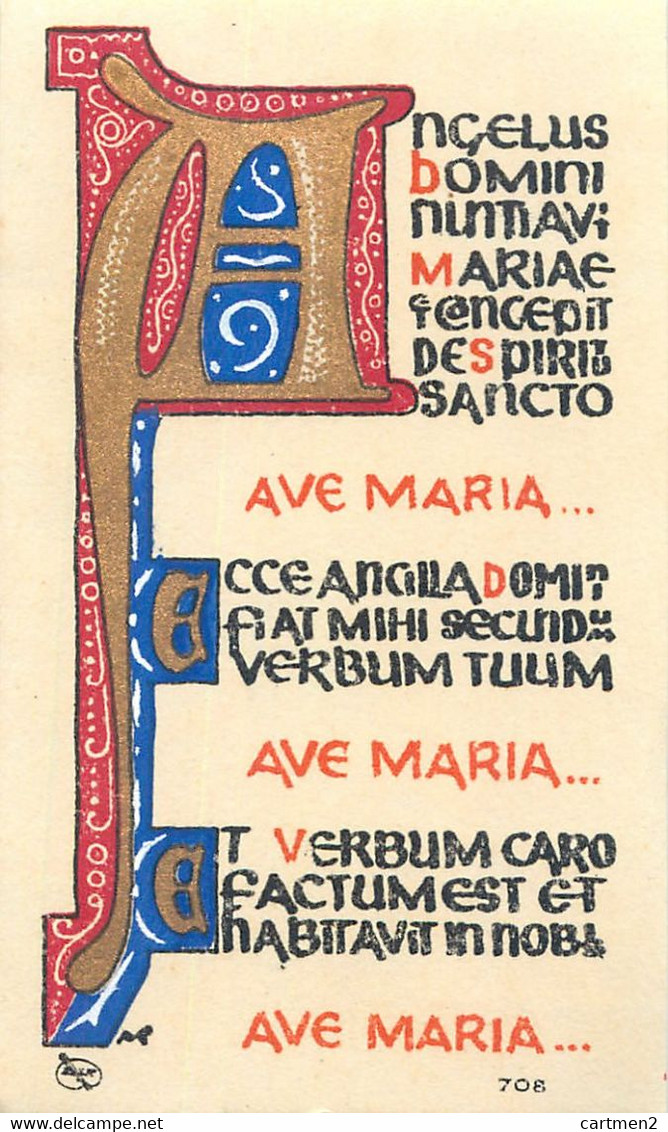 ANGELUS
DOMINI
NUNTIAVi
MARIAE
& CONCEPIT
DE SPIRITU
SANCTO
AVE MARIA...
ECCE ANCILLA DOMINI
FIAT MIHI SECUND
VERBUM TUUM
AVE MARIA...
ET VERBUM CARO
FACTUM EST ET
HABITAVIT IN NOBIS
AVE MARIA...
708
© delcampe.net
cartmen2